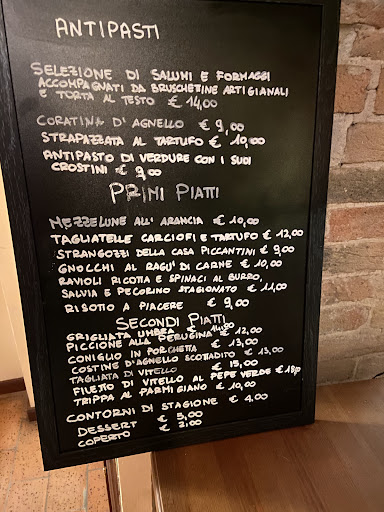 ANTIPASTI
SELEZIONE DI SALUMI E FORMAGGI
ACCOMPAGNATI DA BRUSCHETTINE ARTIGIANALI
E TORTA AL TESTO € 14,00
CORATINA D'AGNELLO € 9,00
STRAPAZZATA AL TARTUFO € 10,00
ANTIPASTO DI VERDURE CON I SUOI
CROSTINI € 9,00
PRIMI PIATTI
MEZZELUNE ALL'ARANCIA € 10,00
TAGLIATELLE CARCIOFI E TARTUFO € 12,00
STRANGOZZI DELLA CASA PICCANTINI € 9,00
GNOCCHI AL RAGU' DI CARNE € 10,00
RAVIOLI RICOTTA E SPINACI AL BURRO,
SALVIA E PECORINO STAGIONATO € 11,00
RISOTTO A PIACERE € 9,00
SECONDI PIATTI
GRIGLIATA UMBRA € 14,00
PICCIONE ALLA PERUGINA € 12,00
CONIGLIO IN PORCHETTA € 13,00
COSTINE D'AGNELLO SCOTTADITO € 15,00
TAGLIATA DI VITELLO € 15,00
FILETTO DI VITELLO AL PEPE VERDE €
TRIPPA AL PARMIGIANO € 10,00
CONTORNI DI STAGIONE € 4,00
DESSERT € 5,00
COPERTO € 2,00